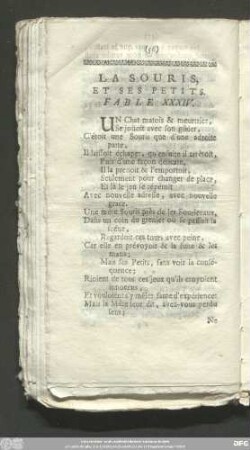 LA SOURIS,
ET SES PETITS.
FABLE XXXIV.
UN Chat matois & meurtrier,
Se jouait avec son gibier,
C'étoit une Souris que d'une adroite
patte,
Il laissoit échapper, qu'ensuite il
D'une façon
Il la prenoit & l'emportoit,
Seulement pour changer de place,
Et là le jeu se répétoit
Avec nouvelle adresse, avec nouvelle
grace.
Une autre Souris près de les Souriceaux,
Dans un coin du grenier où se passoit la
scène,
Regardoit ces tours avec peine,
Car elle en prévoyoit & la suite & les
maux;
Mais ses Petits, sans voir la consé-
quence;
Rioient de tous ces jeux qu'ils croyoient
innocens;
Et vouloient y mêler faute d'expérience:
Mais la Mère leur dit, avez-vous perdu
sens;
No